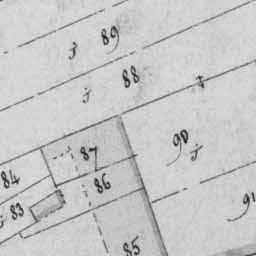 89
88
90
87
84
86
83
91
85